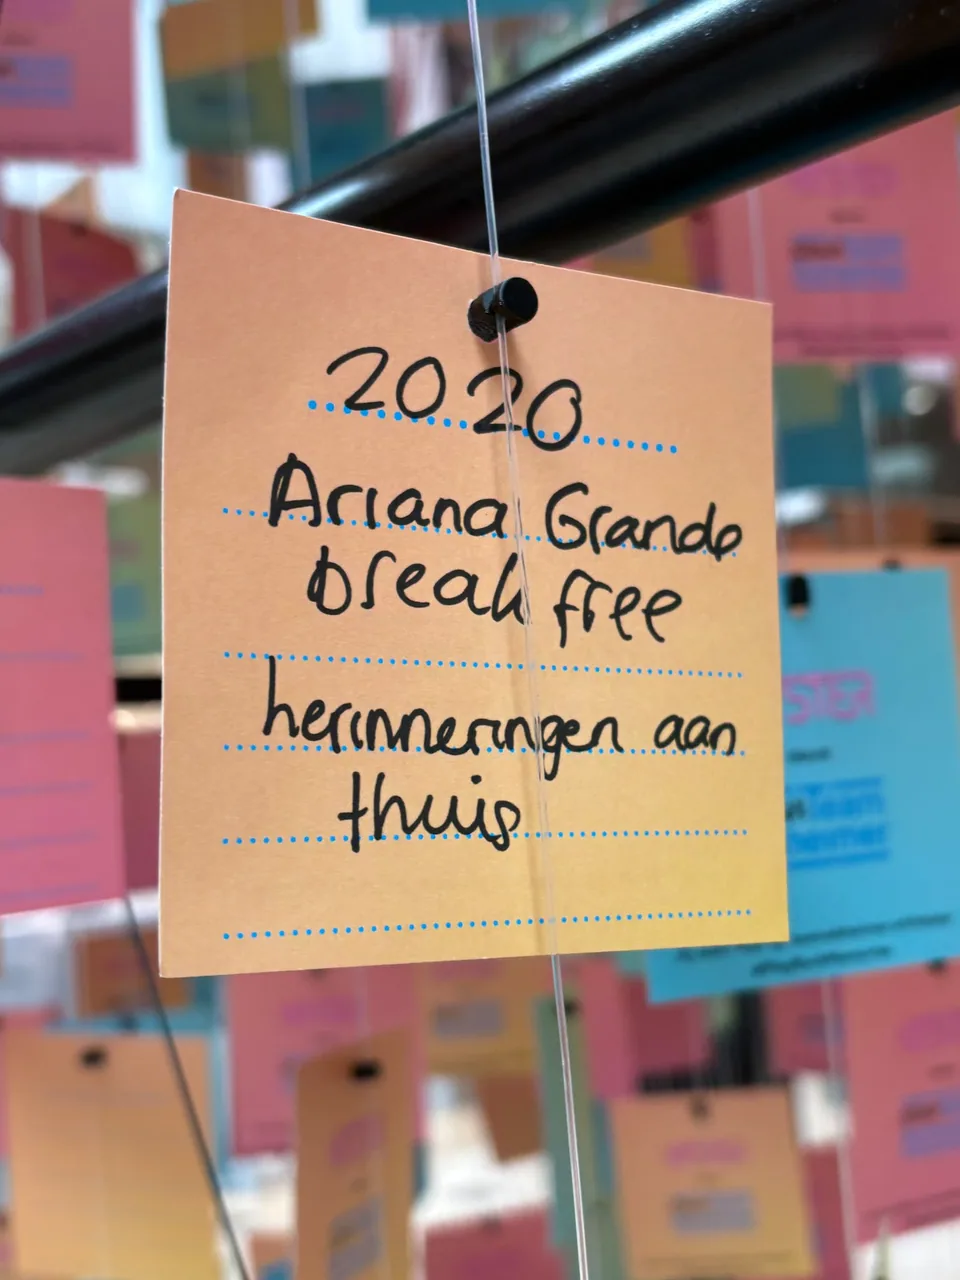 2020
Ariana Grande
break free
herinneringen aan
thuis